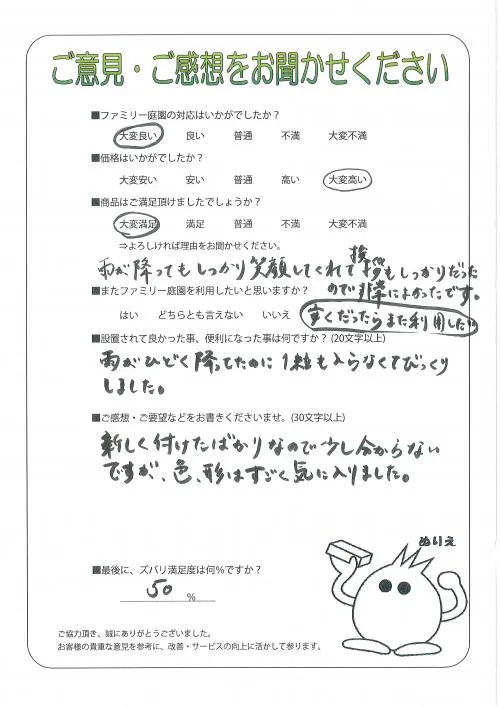 ご意見・ご感想をお聞かせください
■ファミリー庭園の対応はいかがでしたか？
大変良い 良い 普通 不満 大変不満
■価格はいかがでしたか？
大変安い 安い 普通 高い 大変高い
■商品はご満足頂けましたでしょうか？
大変満足 満足 普通 不満 大変不満
⇒よろしければ理由をお聞かせください。
雨が降ってもしっかり笑顔してくれて挨拶もしっかりだった
ので非常によかったです。
■またファミリー庭園を利用したいと思いますか？
はい どちらとも言えない いいえ
すくだったらまた利用したい
■設置されて良かった事、便利になった事は何ですか？(20文字以上)
雨がひどく降ってたのに1粒も入らなくてびっくり
しました。
■ご感想・ご要望などをお書きくださいませ。(30文字以上)
新しく付けたばかりなので少し分からない
ですが、色、形はすごく気に入りました。
ぬりえ
■最後に、ズバリ満足度は何％ですか？
50 ％
ご協力頂き、誠にありがとうございました。
お客様の貴重な意見を参考に、改善・サービスの向上に活かして参ります。